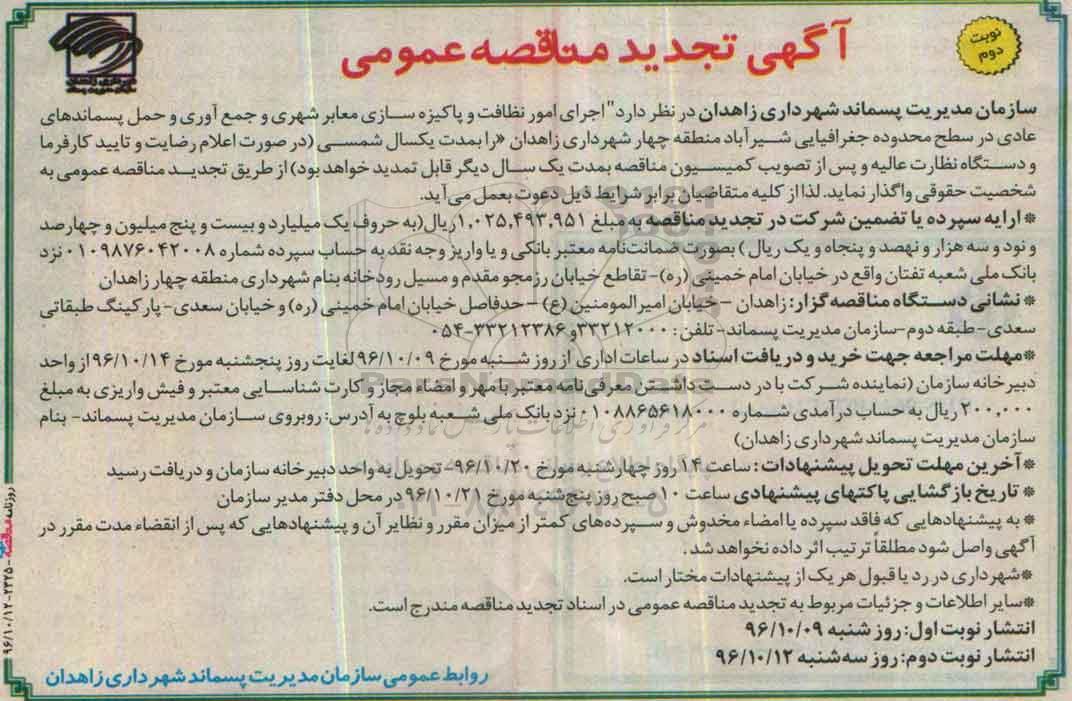 نوبت دوم
آگهی تجدید مناقصه عمومی
سازمان مدیریت پسماند شهرداری زاهدان در نظر دارد "اجرای امور نظافت و پاکیزه سازی معابر شهری و جمع آوری و حمل پسماندهای
عادی در سطح محدوده جغرافیایی شیرآباد منطقه چهار شهرداری زاهدان «را بمدت یکسال شمسی (در صورت اعلام رضایت و تایید کارفرما
و دستگاه نظارت عالیه و پس از تصویب کمیسیون مناقصه بمدت یک سال دیگر قابل تمدید خواهد بود) از طریق تجدید مناقصه عمومی به
شخصیت حقوقی واگذار نماید. لذا از کلیه متقاضیان برابر شرایط ذیل دعوت بعمل می آید.
*ارایه سپرده یا تضمین شرکت در تجدید مناقصه به مبلغ ۱,۰۲۵,۴۹۳,۹۵۱ ریال(به حروف یک میلیارد و بیست و پنج میلیون و چهارصد
و نود و سه هزار و نهصد و پنجاه و یک ریال) بصورت ضمانتنامه معتبر بانکی و یا واریز وجه نقد به حساب سپرده شماره ۰۱۰۹۸۷۶۰۴۲۰۰۸ نزد
بانک ملی شعبه تفتان واقع در خیابان امام خمینی (ره)- تقاطع خیابان رزمجو مقدم و مسیل رودخانه بنام شهرداری منطقه چهار زاهدان
* نشانی دستگاه مناقصه گزار: زاهدان - خیابان امیرالمومنین (ع) - حدفاصل خیابان امام خمینی (ره) و خیابان سعدی- پارکینگ طبقاتی
سعدی- طبقه دوم-سازمان مدیریت پسماند- تلفن: ۳۳۲۱۲۰۰۰و ۳۳۲۱۲۳۸۶-۰۵۴
*مهلت مراجعه جهت خرید و دریافت اسناد در ساعات اداری از روز شنبه مورخ ۹۶/۱۰/۰۹ لغایت روز پنجشنبه مورخ ۹۶/۱۰/۱۴ از واحد
دبیرخانه سازمان (نماینده شرکت با در دست داشتن معرفی نامه معتبر با مهر و امضاء مجاز و کارت شناسایی معتبر و فیش واریزی به مبلغ
۲۰۰,۰۰۰ ریال به حساب درآمدی شماره ۰۱۰۸۸۶۵۶۱۸۰۰۰ نزد بانک ملی شعبه بلوچ به آدرس: روبروی سازمان مدیریت پسماند- بنام
سازمان مدیریت پسماند شهرداری زاهدان)
*آخرین مهلت تحویل پیشنهادات: ساعت ۱۴ روز چهارشنبه مورخ ۹۶/۱۰/۲۰- تحویل به واحد دبیرخانه سازمان و دریافت رسید
* تاریخ بازگشایی پاکتهای پیشنهادی ساعت ۱۰ صبح روز پنج شنبه مورخ ۹۶/۱۰/۲۱ در محل دفتر مدیر سازمان
* به پیشنهادهایی که فاقد سپرده یا امضاء مخدوش و سپرده های کمتر از میزان مقرر و نظایر آن و پیشنهادهایی که پس از انقضاء مدت مقرر در
آگهی واصل شود مطلقاً ترتیب اثر داده نخواهد شد.
*شهرداری در رد یا قبول هر یک از پیشنهادات مختار است.
*سایر اطلاعات و جزئیات مربوط به تجدید مناقصه عمومی در اسناد تجدید مناقصه مندرج است.
انتشار نوبت اول: روز شنبه ۹۶/۱۰/۰۹
انتشار نوبت دوم: روز سه شنبه ۹۶/۱۰/۱۲
روابط عمومی سازمان مدیریت پسماند شهرداری زاهدان
روزنامه مناقصه - ۲۳۲۵-۹۶/۱۰/۱۲